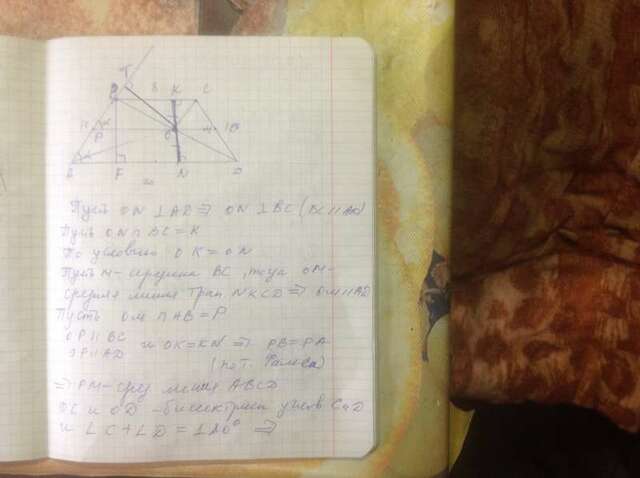 T
8 K C
P
A F N D
Пусть ON ⊥ AD ⇒ ON ⊥ BC (BC ∥ AD)
Пусть ON ∩ BC = K
По условию OK = ON
Пусть M - середина BC, тогда OM -
средняя линия трап. NKCD ⇒ OM ∥ AD
Пусть OM ∩ AB = P
OP ∥ BC
OP ∥ AD и OK = KN ⇒ PB = PA
(по т. Фалеса)
⇒ PM - сред линия ABCD
OC и OD - биссектрисы углов C и D
и ∠C + ∠D = 180° ⇒